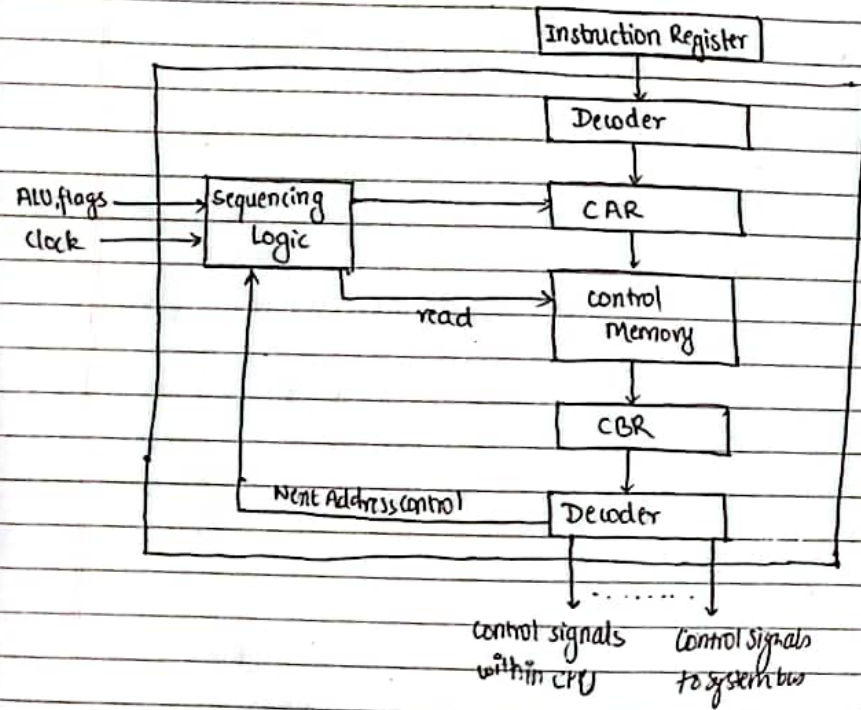 Instruction Register
Decoder
ALU, flags
Clock
Sequencing
Logic
CAR
read
Control
Memory
CBR
Next Address control
Decoder
Control signals
within CPU
Control signals
to system bus